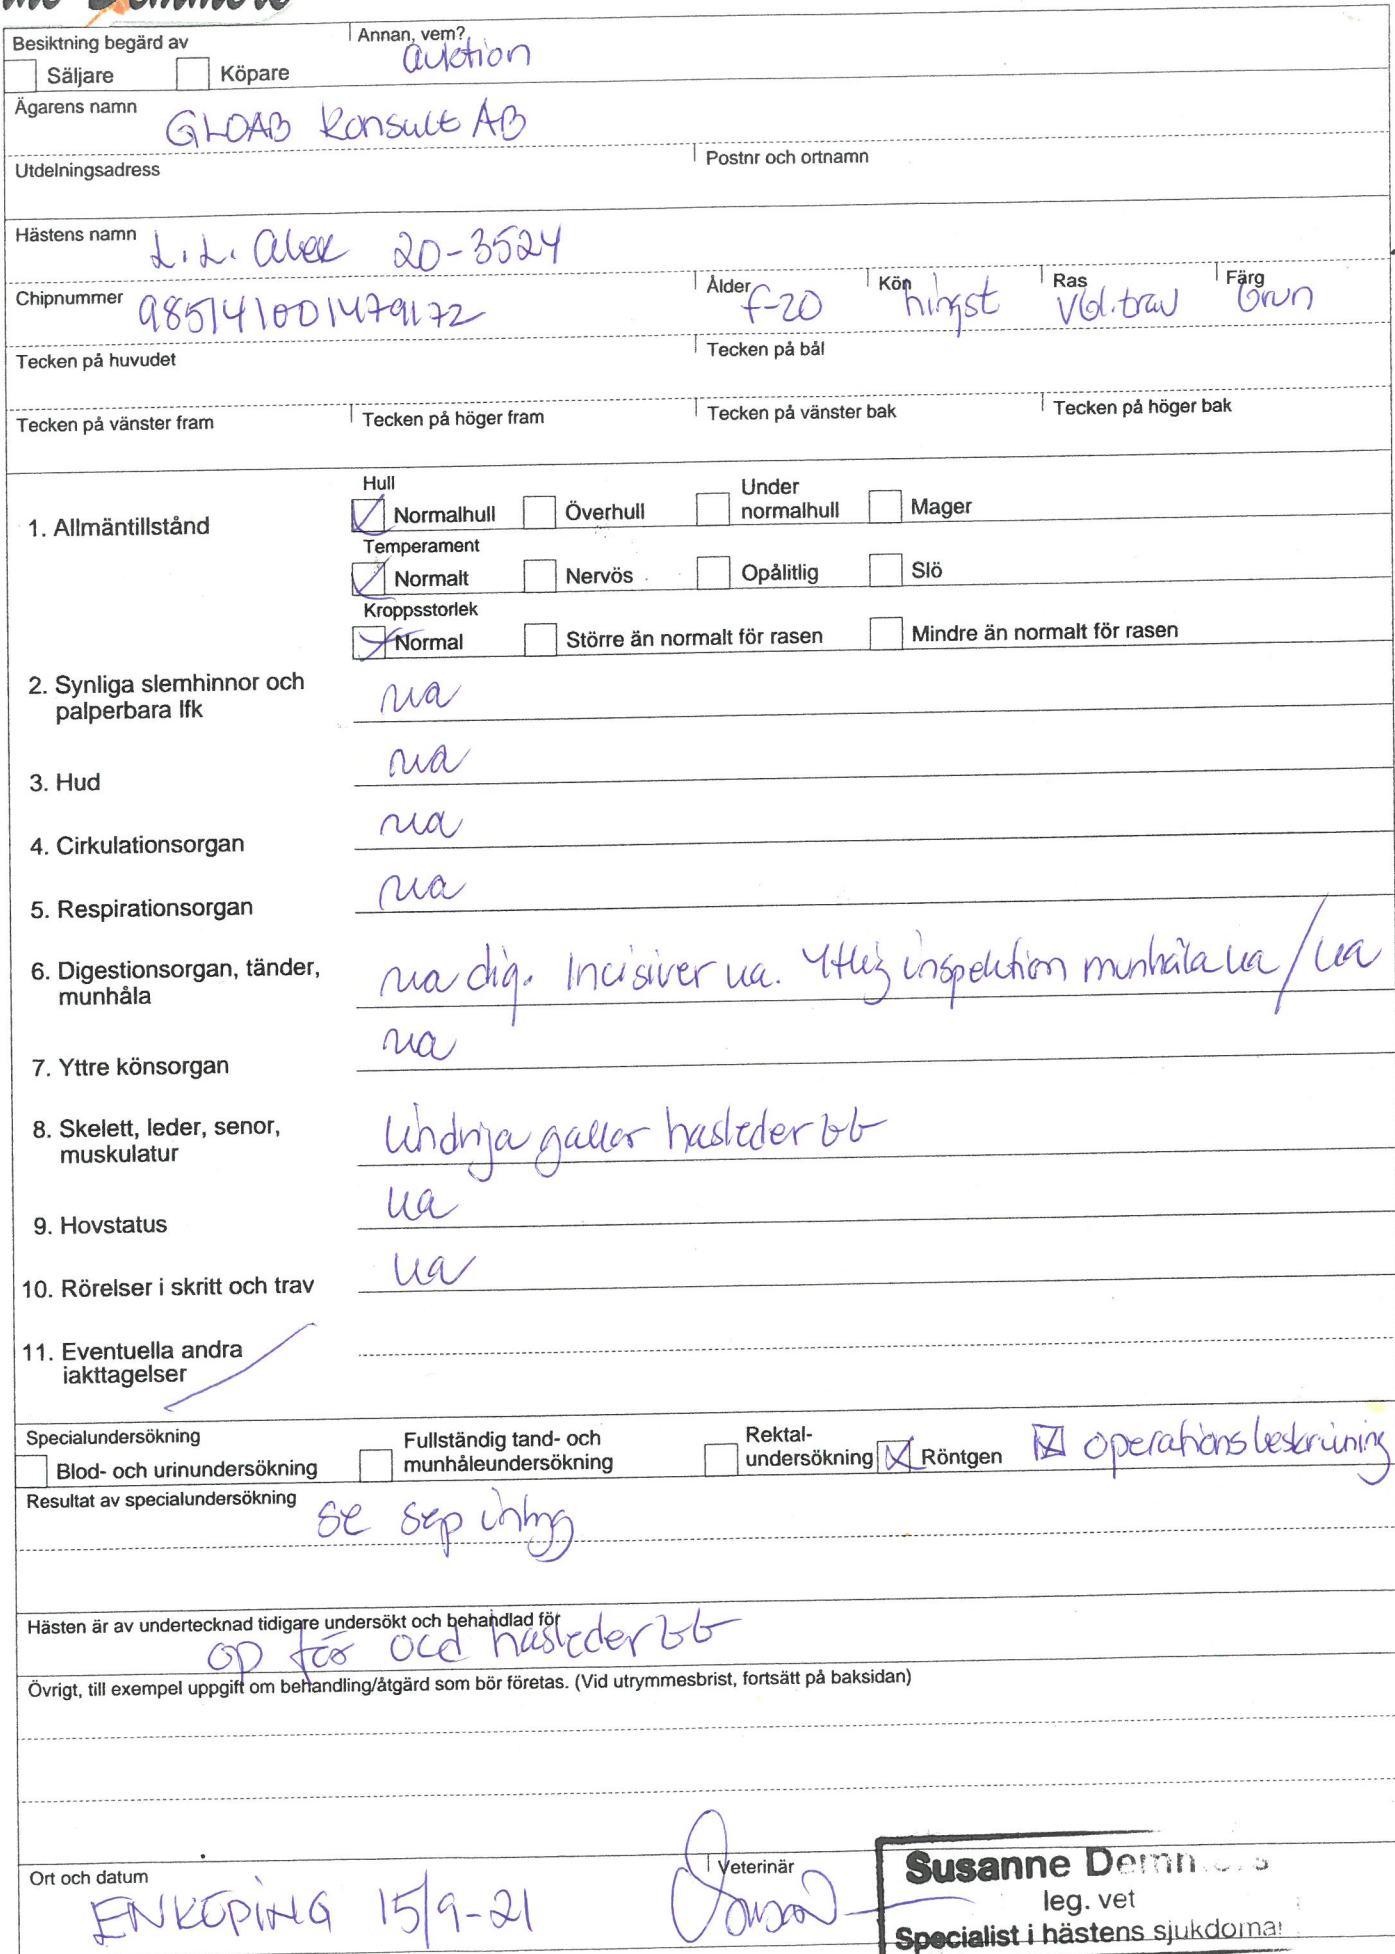 Besiktning begärd av
Annan, vem?
auktion
Säljare Köpare
Ägarens namn
GLOAB Konsult AB
Utdelningsadress Postnr och ortnamn
Hästens namn L.L. Alex 20-3524
Chipnummer 985141001479172 Ålder f-20 Kön hingst Ras vbl.trav Färg brun
Tecken på huvudet Tecken på bål
Tecken på vänster fram Tecken på höger fram Tecken på vänster bak Tecken på höger bak
1. Allmäntillstånd
Hull
Normalhull Överhull Under normalhull Mager
Temperament
Normalt Nervös Opålitlig Slö
Kroppsstorlek
Normal Större än normalt för rasen Mindre än normalt för rasen
2. Synliga slemhinnor och
palperbara lfk
ua
3. Hud ua
4. Cirkulationsorgan ua
5. Respirationsorgan ua
6. Digestionsorgan, tänder,
munhåla
ua dig. Incisiver ua. Ytlig inspektion munhåla ua / ua
7. Yttre könsorgan ua
8. Skelett, leder, senor,
muskulatur
lindriga gallor hasleder bb
9. Hovstatus ua
10. Rörelser i skritt och trav ua
11. Eventuella andra
iakttagelser
Specialundersökning
Blod- och urinundersökning
Fullständig tand- och
munhåleundersökning
Rektal-
undersökning
Röntgen
operationsbeskrivning
Resultat av specialundersökning
se sep intyg
Hästen är av undertecknad tidigare undersökt och behandlad för
op för ocd hasleder bb
Övrigt, till exempel uppgift om behandling/åtgärd som bör företas. (Vid utrymmesbrist, fortsätt på baksidan)
Ort och datum
ENKÖPING 15/9-21
Veterinär
Susanne
leg. vet
Specialist i hästens sjukdomar